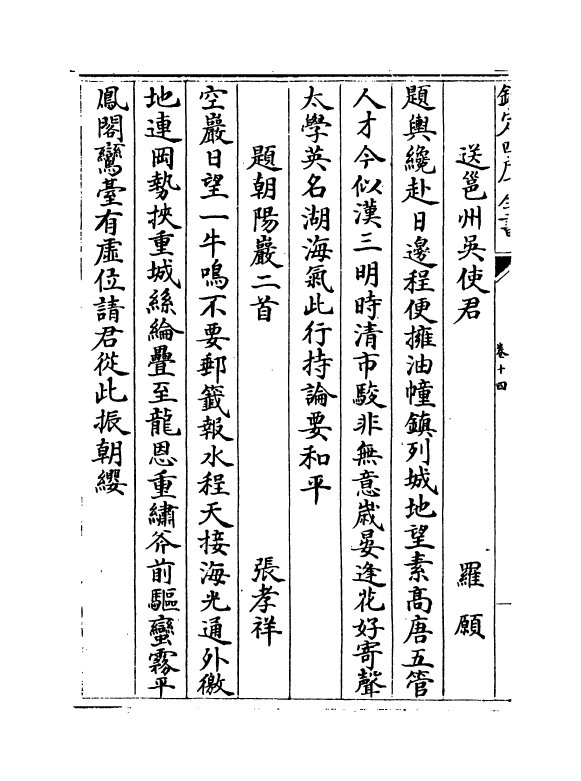 欽定四庫全書
卷十四
送邕州吳使君
羅願
題輿纔赴日邊程便擁油幢鎮列城地望素髙唐五管
人才今似漢三明時清市駿非無意嵗晏逢花好寄聲
太學英名湖海氣此行持論要和平
題朝陽巖二首
張孝祥
空巖日望一牛鳴不要郵籤報水程天接海光通外徼
地連岡勢挾重城絲綸疊至龍恩重繡斧前驅蠻霧平
鳳閣鸞臺有虛位請君從此振朝纓